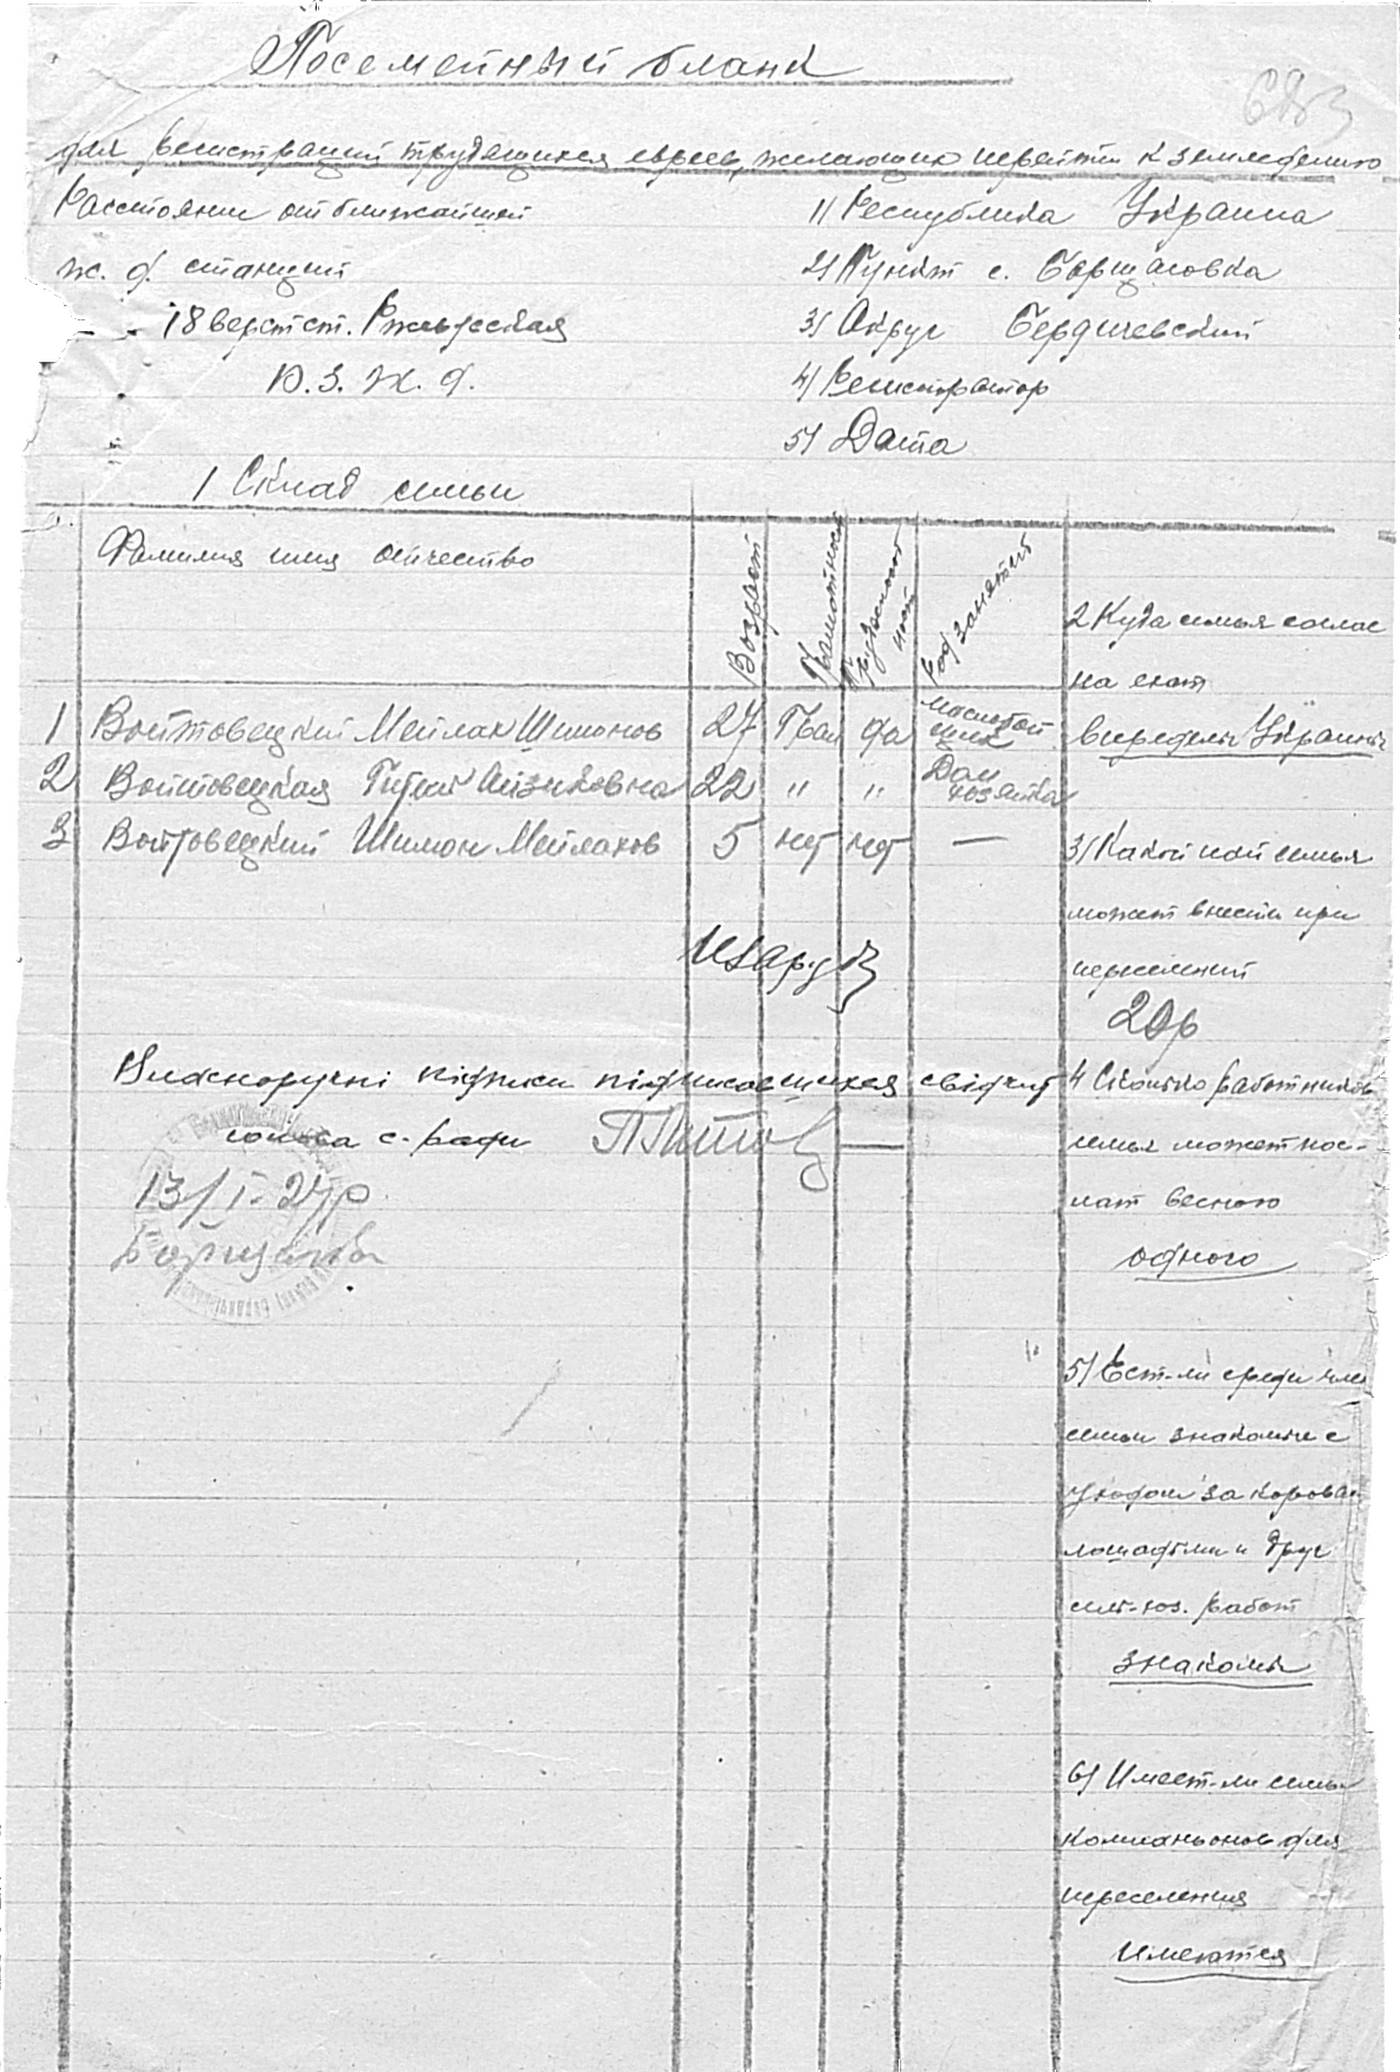 Посемейный бланк
683
для регистраций трудящихся евреев, желающих перейти к земледелию
Расстояние от ближайшей
ж. д. станций
18 верст ст. Ржевусская
Ю. З. Ж. Д.
1) Республика Украина
2) Пункт с. Борщаговка
3) Округ Бердичевский
4) Регистратор
5) Дата
1 Склад семьи
Фамилия имя отчество
Возраст
Грамотност
Трудоспособ
ност
Род занятий
1 Войтовецкий Мейлах Шимонов 27 Грам да маслобой
щик
2 Войтовецкая Гитля Айзиковна 22 " " Дом
хозяйка
3 Войтовецкий Шимон Мейлахов 5 нет нет —
Власноручні підписи підписавшихся свідчит
голова с. ради
13/I-24р
Борщагов
2 Куда семья соглас
на ехат
впредели Украины
3) Какой пай семья
может внести при
переселений
20р
4 Сколько работников
семья может пос-
лат весною
одного
5) Ест-ли среди член
семьи знакомые с
уходом за корова
лошадьми и друг
сел-хоз. работ
знакомы
6) Имеет-ли семья
компаньонов для
переселения
имеются